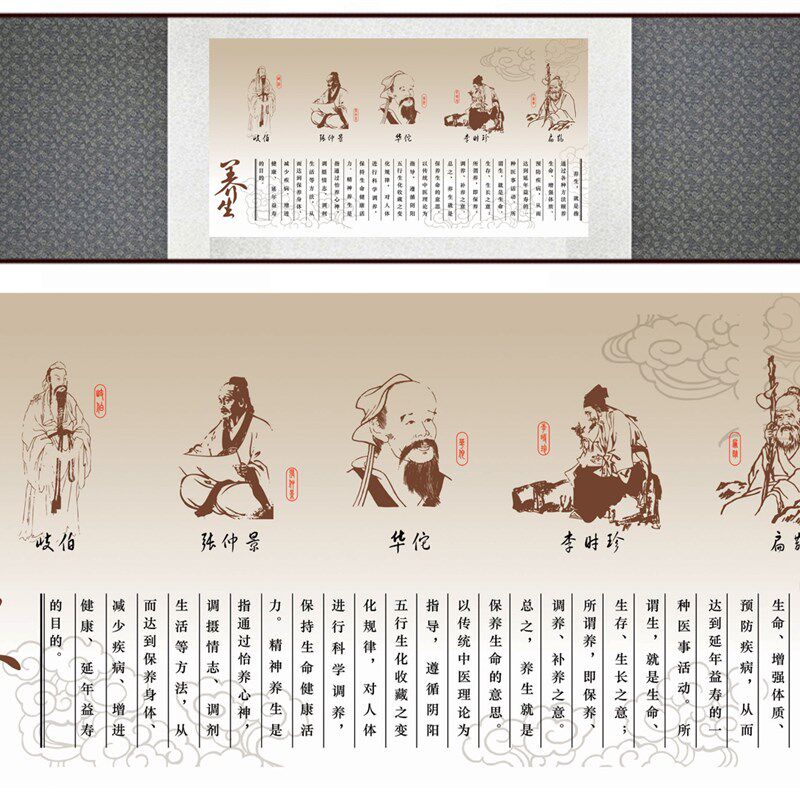 岐伯
张仲景
华佗
李时珍
扁鹊
养生
养生，就是指
通过各种方法颐养
生命、增强体质、
预防疾病，从而
达到延年益寿的一
种医事活动。所
谓生，就是生命、
生存、生长之意；
所谓养，即保养、
调养、补养之意。
总之，养生就是
保养生命的意思。
以传统中医理论为
指导，遵循阴阳
五行生化收藏之变
化规律，对人体
进行科学调养，
保持生命健康活
力。精神养生是
指通过怡养心神，
调摄情志、调剂
生活等方法，从
而达到保养身体
减少疾病、增进
健康、延年益寿
的目的。
岐伯
岐伯
张仲景
张仲景
华佗
华佗
李时珍
李时珍
扁鹊
扁鹊
生命、增强体质、
预防疾病，从而
达到延年益寿的一
种医事活动。所
谓生，就是生命、
生存、生长之意；
所谓养，即保养、
调养、补养之意。
总之，养生就是
保养生命的意思。
以传统中医理论为
指导，遵循阴阳
五行生化收藏之变
化规律，对人体
进行科学调养，
保持生命健康活
力。精神养生是
指通过怡养心神，
调摄情志、调剂
生活等方法，从
而达到保养身体
减少疾病、增进
健康、延年益寿
的目的。